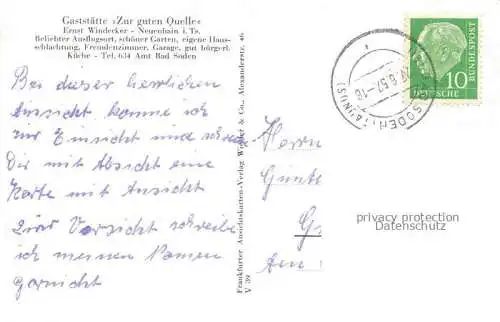 Gaststätte »Zur guten Quelle«
Ernst Windecker - Neuenhain i. Ts.
Beliebter Ausflugsort, schöner Garten, eigene Haus-
schlachtung, Fremdenzimmer, Garage, gut bürgerl.
Küche - Tel. 654 Amt Bad Soden
Bei dieser herrlichen
Aussicht komme ich
zur Einsicht und
Dir mit Absicht eine
Karte mit Ansicht
Zur Vorsicht schreibe
ich meinen Namen
garnicht
Frankfurter Ansichtskarten-Verlag & Co., Alexanderstr. 46
V 39
Herrn
DEUTSCHE
BUNDESPOST
10
SODEN (TAUNUS)
6.57-18
privacy protection
Datenschutz